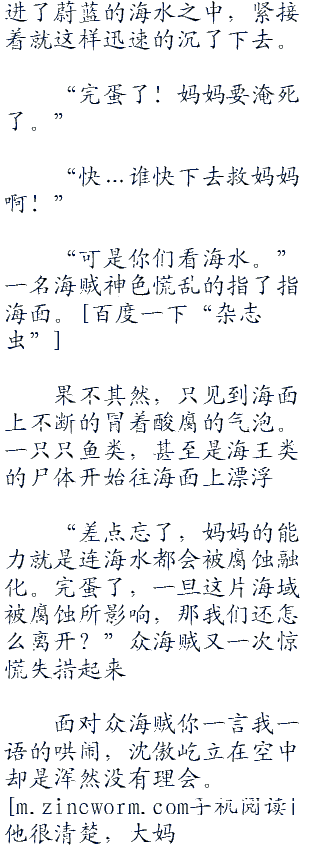 进了蔚蓝的海水之中，紧接
着就这样迅速的沉了下去。
“完蛋了！妈妈要淹死
了。”
“快…谁快下去救妈妈
啊！”
“可是你们看海水。”
一名海贼神色慌乱的指了指
海面。[百度一下“杂志
虫”]
果不其然，只见到海面
上不断的冒着酸腐的气泡。
一只只鱼类，甚至是海王类
的尸体开始往海面上漂浮
“差点忘了，妈妈的能
力就是连海水都会被腐蚀融
化。完蛋了，一旦这片海域
被腐蚀所影响，那我们还怎
么离开？”众海贼又一次惊
慌失措起来
面对众海贼你一言我一
语的哄闹，沈傲屹立在空中
却是浑然没有理会。
[m.zincworm.com手机阅读]
他很清楚，大妈